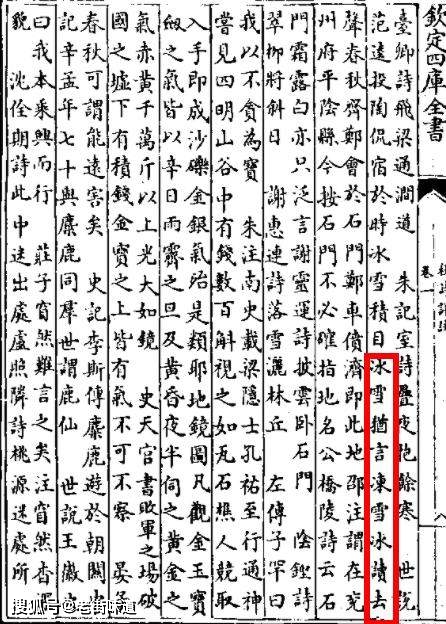 欽定四庫全書
卷一
臺卿詩飛梁通澗道 朱記室詩疊夜抱餘寒 世説
范逵投陶侃宿於時冰雪積日冰雪猶言凍雪冰讀去
聲春秋齊鄭會於石門鄭車僨濟即此地邵注謂在兖
州府平陰縣今按石門不必確指地名公橋陵詩云石
門霜露白亦只泛言謝靈運詩披雲卧石門 陰鏗詩
翠柳將斜日 謝惠連詩落雪灑林丘 左傳子罕曰
我以不貪為寳 朱注南史載梁隱士孔祐至行通神
嘗見四明山谷中有錢數百斛視之如瓦石樵人競取
入手即成沙礫金銀氣殆是類耶地鏡圖凡觀金玉寳
劍之氣皆以辛日雨霽之旦及黄昏夜半伺之黄金之
氣赤黄千萬斤以上光大如鏡 史天官書敗軍之場破
國之墟下有積錢金寳之上皆有氣不可不察 晏子
春秋可謂能逺害矣 史記李斯傳麋鹿遊於朝 關中
記辛孟年七十與麋鹿同羣世謂鹿仙 世説王徽之
曰我本乘興而行 莊子窅然難言之矣注窅然杳深
貌 沈佺期詩此中迷出處盧照隣詩桃源迷處所
搜狐号@老街味道